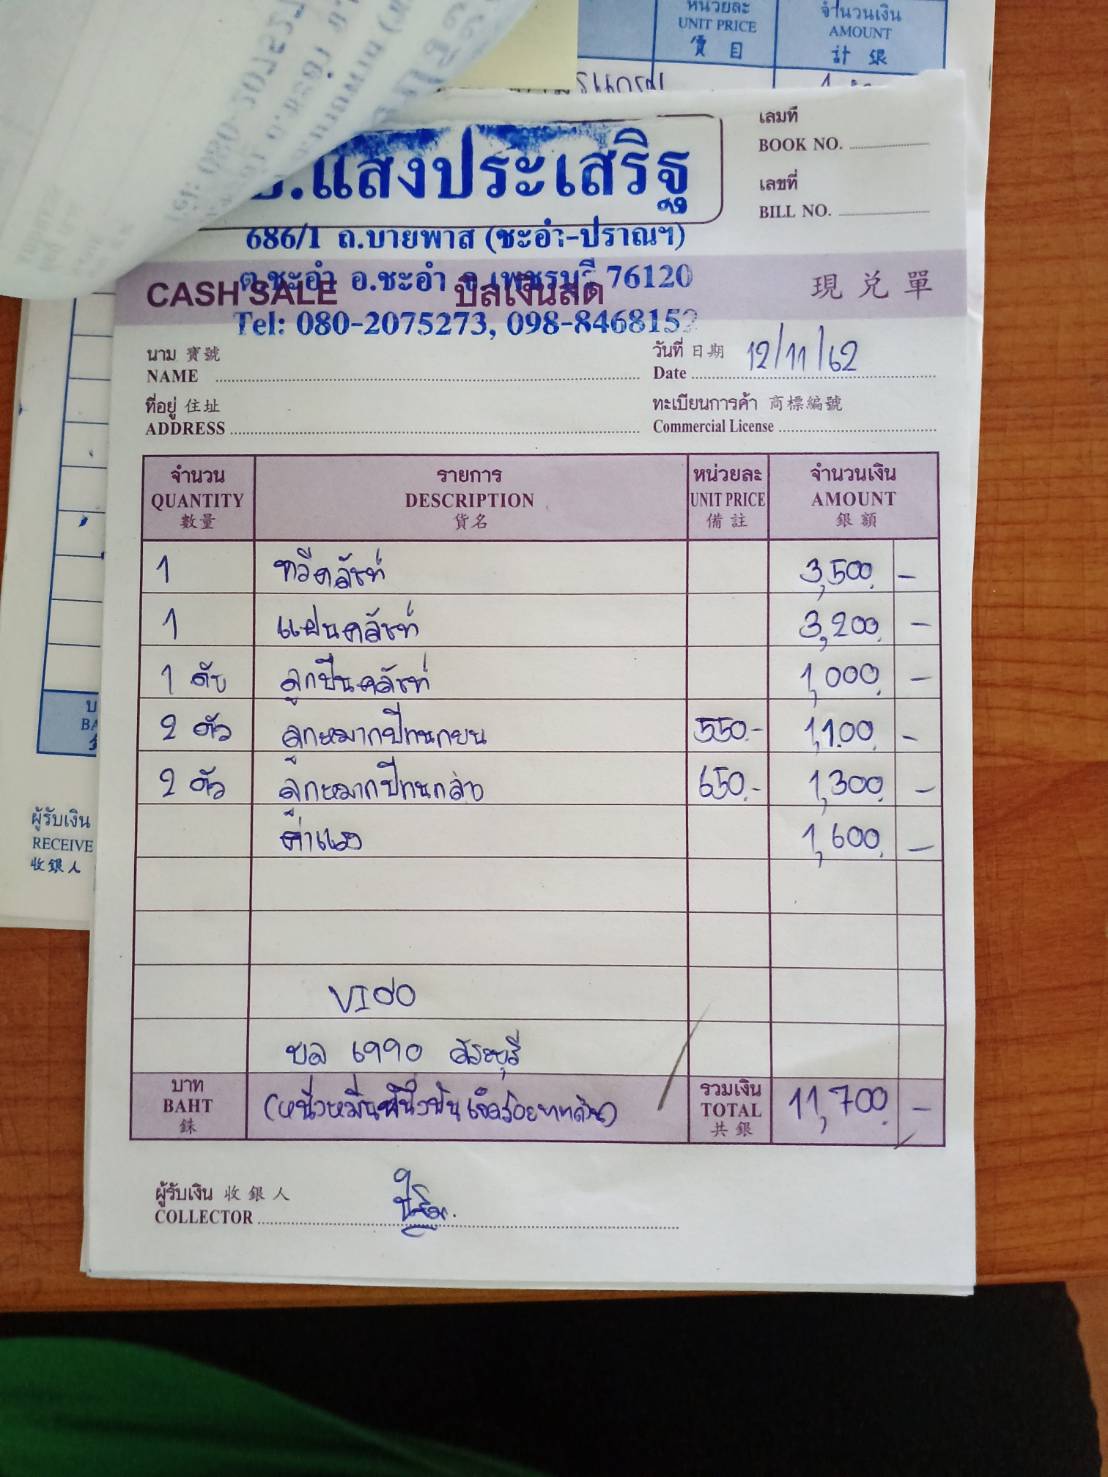 หน่วยละ จำนวนเงิน
UNIT PRICE AMOUNT
價目 計銀
เลมที่
BOOK NO.
.แสงประเสริฐ
เลขที่
BILL NO.
686/1 ถ.บายพาส (ชะอำ-ปราณฯ)
ต.ชะอำ อ.ชะอำ จ.เพชรบุรี 76120
CASH SALE บิลเงินสด 現兑單
Tel: 080-2075273, 098-8468152
นาม 寶號 วันที่ 日期 12/11/62
NAME Date
ที่อยู่ 住址 ทะเบียนการค้า 商標編號
ADDRESS Commercial License
จำนวน รายการ หน่วยละ จำนวนเงิน
QUANTITY DESCRIPTION UNIT PRICE AMOUNT
數量 貨名 備註 銀額
1 หวีคลัชท์ 3,500 -
1 แผ่นคลัชท์ 3,200 -
1 ตับ ลูกปืนคลัชท์ 1,000 -
2 ตัว ลูกหมากปีกนกบน 550.- 1,100 -
2 ตัว ลูกหมากปีกนกล่าง 650.- 1,300 -
ค่าแรง 1,600 -
VIGO
บล 6990 สระบุรี
บาท (หนึ่งหมื่นหนึ่งพันเจ็ดร้อยบาทถ้วน) รวมเงิน 11,700 -
BAHT TOTAL
銖 共銀
ผู้รับเงิน
RECEIVE
收銀人
ผู้รับเงิน 收銀人
COLLECTOR